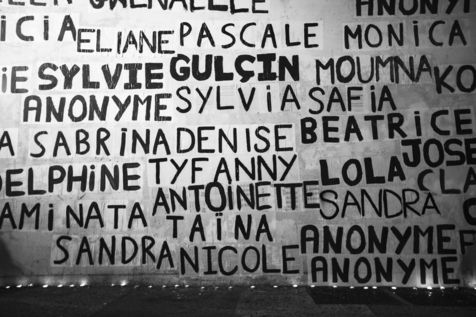 GWENAELLE ANONYM
ICIA ELIANE PASCALE MONICA
IE SYLVIE GULÇIN MOUMNA KO
ANONYME SYLVIA SAFIA
A SABRINA DENISE BEATRICE
DELPHINE TYFANNY LOLA JOSE
AMINATA ANTOINETTE SANDRA CLA
TAÏNA ANONYME
SANDRA NICOLE ANONYME